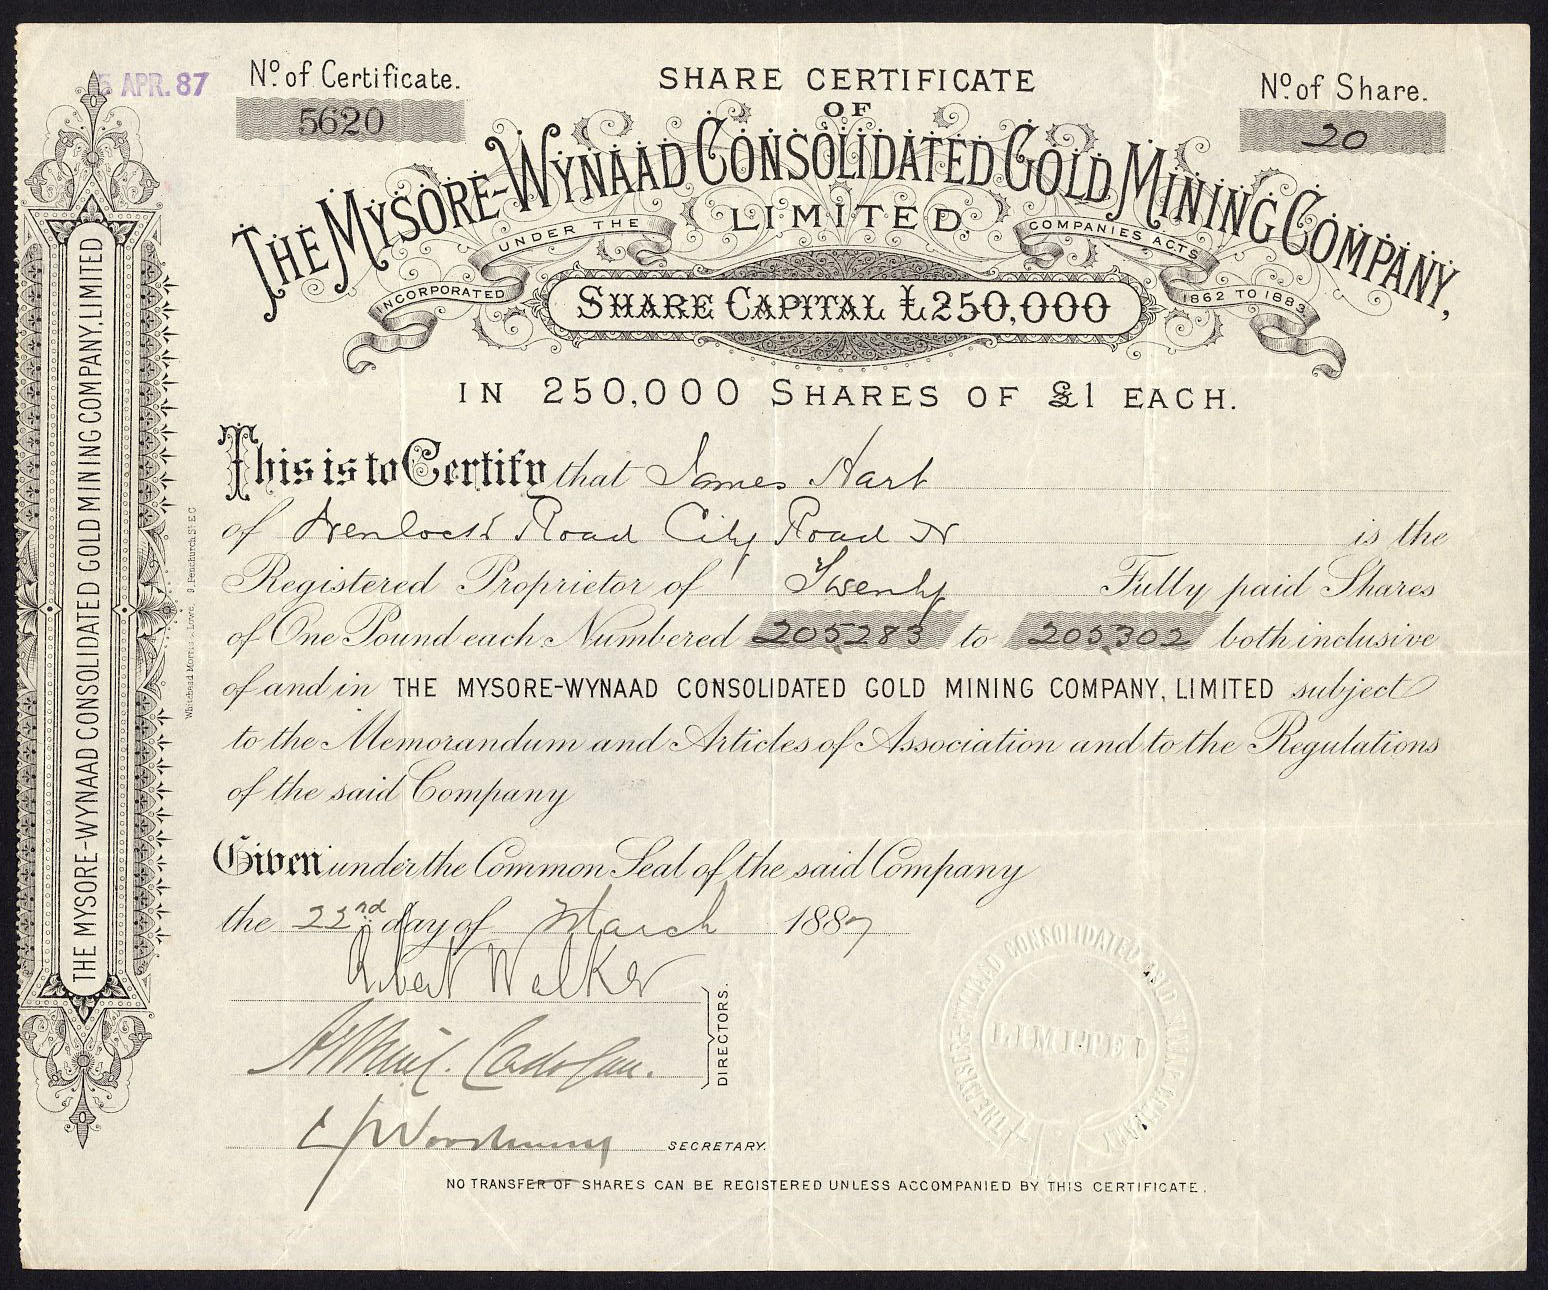 5 APR. 87
Nº of Certificate.
5620
SHARE CERTIFICATE
OF
Nº of Share.
20
THE MYSORE-WYNAAD CONSOLIDATED GOLD MINING COMPANY,
LIMITED.
INCORPORATED UNDER THE COMPANIES ACTS 1862 TO 1883
SHARE CAPITAL £250,000
IN 250,000 SHARES OF £1 EACH.
This is to Certify that James Hart
of Wenlock Road City Road N is the
Registered Proprietor of Twenty Fully paid Shares
of One Pound each Numbered 205283 to 205302 both inclusive
of and in THE MYSORE-WYNAAD CONSOLIDATED GOLD MINING COMPANY, LIMITED subject
to the Memorandum and Articles of Association and to the Regulations
of the said Company
Given under the Common Seal of the said Company
the 22nd day of March 1887
Robert Walker
Cadogan.
DIRECTORS.
SECRETARY.
NO TRANSFER OF SHARES CAN BE REGISTERED UNLESS ACCOMPANIED BY THIS CERTIFICATE.
THE MYSORE-WYNAAD CONSOLIDATED GOLD MINING COMPANY, LIMITED
Whitehead Morris & Lowe, 9 Fenchurch St E.C
THE MYSORE WYNAAD CONSOLIDATED GOLD MINING COMPANY
LIMITED